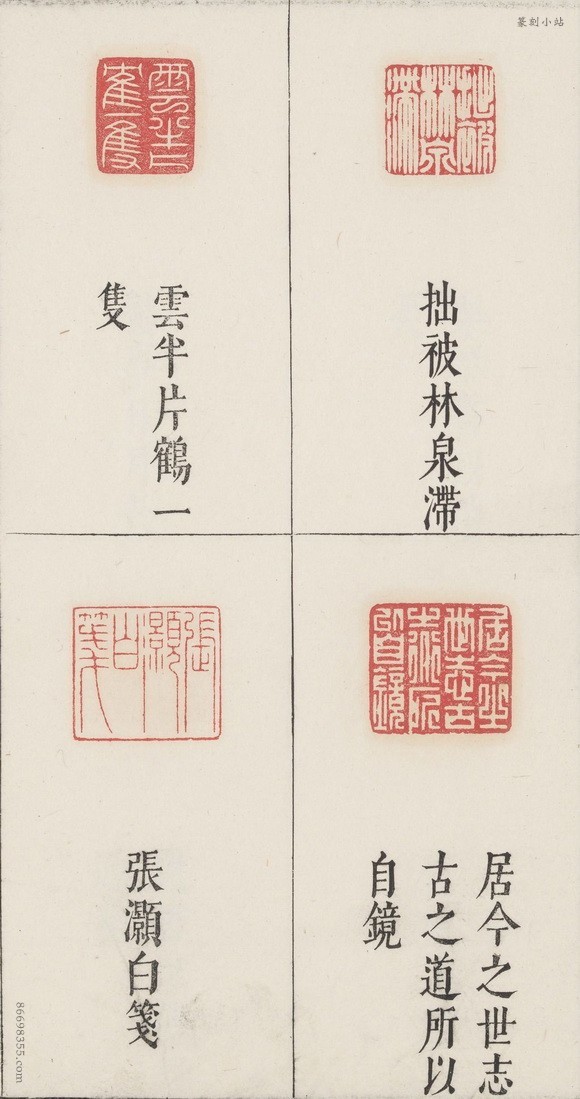 篆刻小站
拙被林泉滯
雲半片鶴一
隻
居今之世志
古之道所以
自鏡
張灝白箋
86698355.com